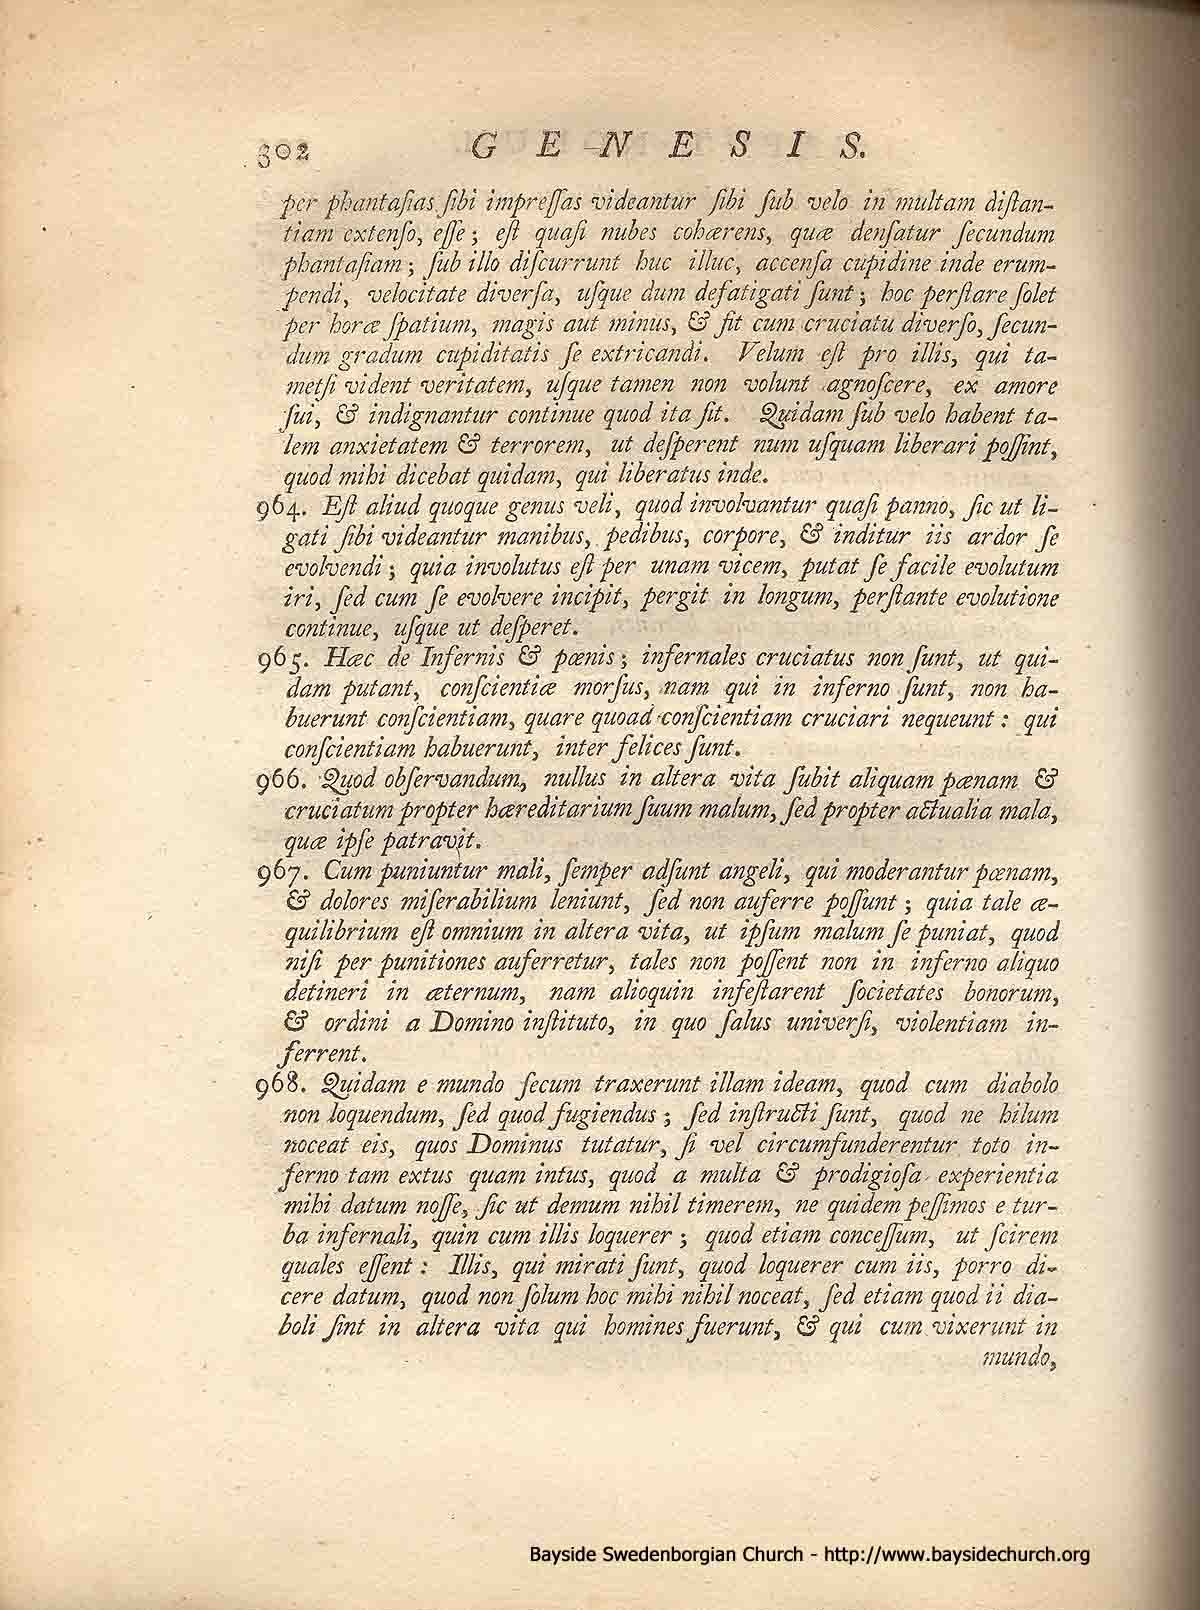 302 GENESIS.
per phantasias sibi impressas videantur sibi sub velo in multam distan-
tiam extenso, esse; est quasi nubes cohærens, quæ densatur secundum
phantasiam; sub illo discurrunt huc illuc, accensa cupidine inde erum-
pendi, velocitate diversa, usque dum defatigati sunt; hoc perstare solet
per horæ spatium, magis aut minus, & fit cum cruciatu diverso, secun-
dum gradum cupiditatis se extricandi. Velum est pro illis, qui ta-
metsi vident veritatem, usque tamen non volunt agnoscere, ex amore
sui, & indignantur continue quod ita sit. Quidam sub velo habent ta-
lem anxietatem & terrorem, ut desperent num usquam liberari possint,
quod mihi dicebat quidam, qui liberatus inde.
964. Est aliud quoque genus veli, quod involvantur quasi panno, sic ut li-
gati sibi videantur manibus, pedibus, corpore, & inditur iis ardor se
evolvendi; quia involutus est per unam vicem, putat se facile evolutum
iri, sed cum se evolvere incipit, pergit in longum, perstante evolutione
continue, usque ut desperet.
965. Hæc de Infernis & pœnis; infernales cruciatus non sunt, ut qui-
dam putant, conscientiæ morsus, nam qui in inferno sunt, non ha-
buerunt conscientiam, quare quoad conscientiam cruciari nequeunt: qui
conscientiam habuerunt, inter felices sunt.
966. Quod observandum, nullus in altera vita subit aliquam pœnam &
cruciatum propter hæreditarium suum malum, sed propter actualia mala,
quæ ipse patravit.
967. Cum puniuntur mali, semper adsunt angeli, qui moderantur pœnam,
& dolores miserabilium leniunt, sed non auferre possunt; quia tale æ-
quilibrium est omnium in altera vita, ut ipsum malum se puniat, quod
nisi per punitiones auferretur, tales non possent non in inferno aliquo
detineri in æternum, nam alioquin infestarent societates bonorum,
& ordini a Domino instituto, in quo salus universi, violentiam in-
ferrent.
968. Quidam e mundo secum traxerunt illam ideam, quod cum diabolo
non loquendum, sed quod fugiendus; sed instructi sunt, quod ne hilum
noceat eis, quos Dominus tutatur, si vel circumfunderentur toto in-
ferno tam extus quam intus, quod a multa & prodigiosa experientia
mihi datum nosse, sic ut demum nihil timerem, ne quidem pessimos e tur-
ba infernali, quin cum illis loquerer; quod etiam concessum, ut scirem
quales essent: Illis, qui mirati sunt, quod loquerer cum iis, porro di-
cere datum, quod non solum hoc mihi nihil noceat, sed etiam quod ii dia-
boli sint in altera vita qui homines fuerunt, & qui cum vixerunt in
mundo,
Bayside Swedenborgian Church - http://www.baysidechurch.org